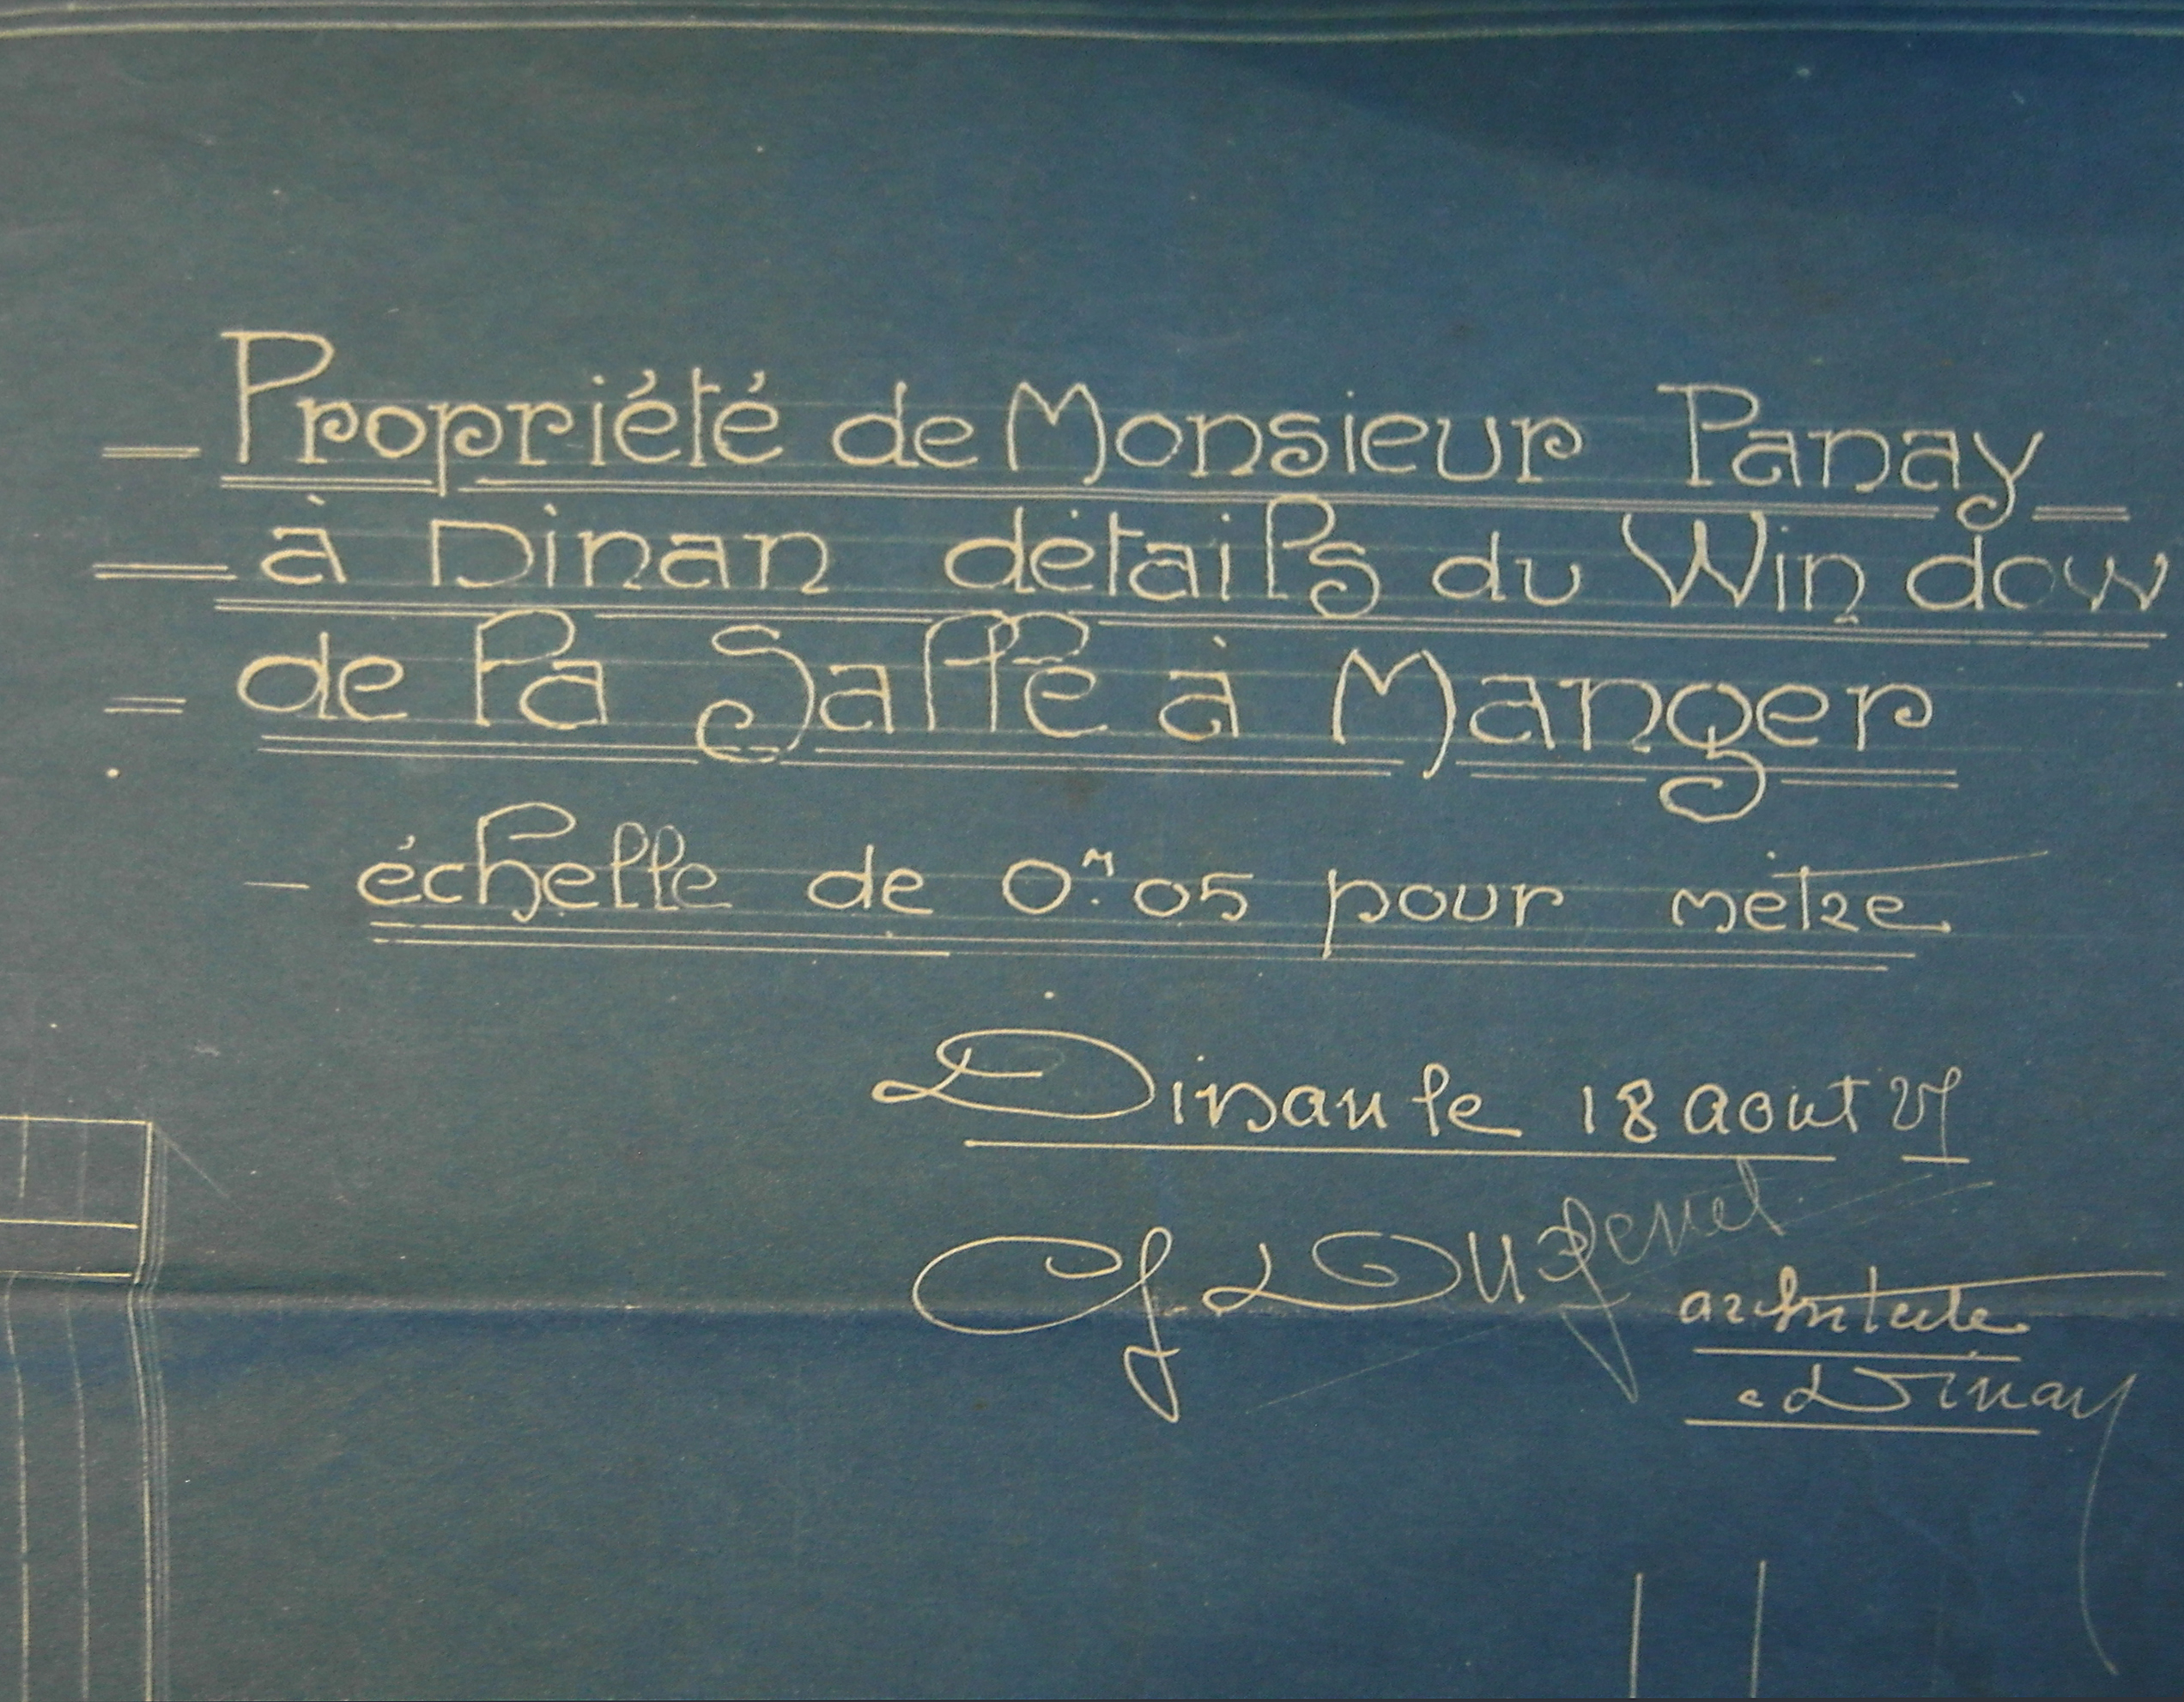 Propriété de Monsieur Panay
à Dinan détails du Window
de la Salle à Manger
échelle de 0m.05 pour mètre
Dinan le 18 aout
architecte
Dinan